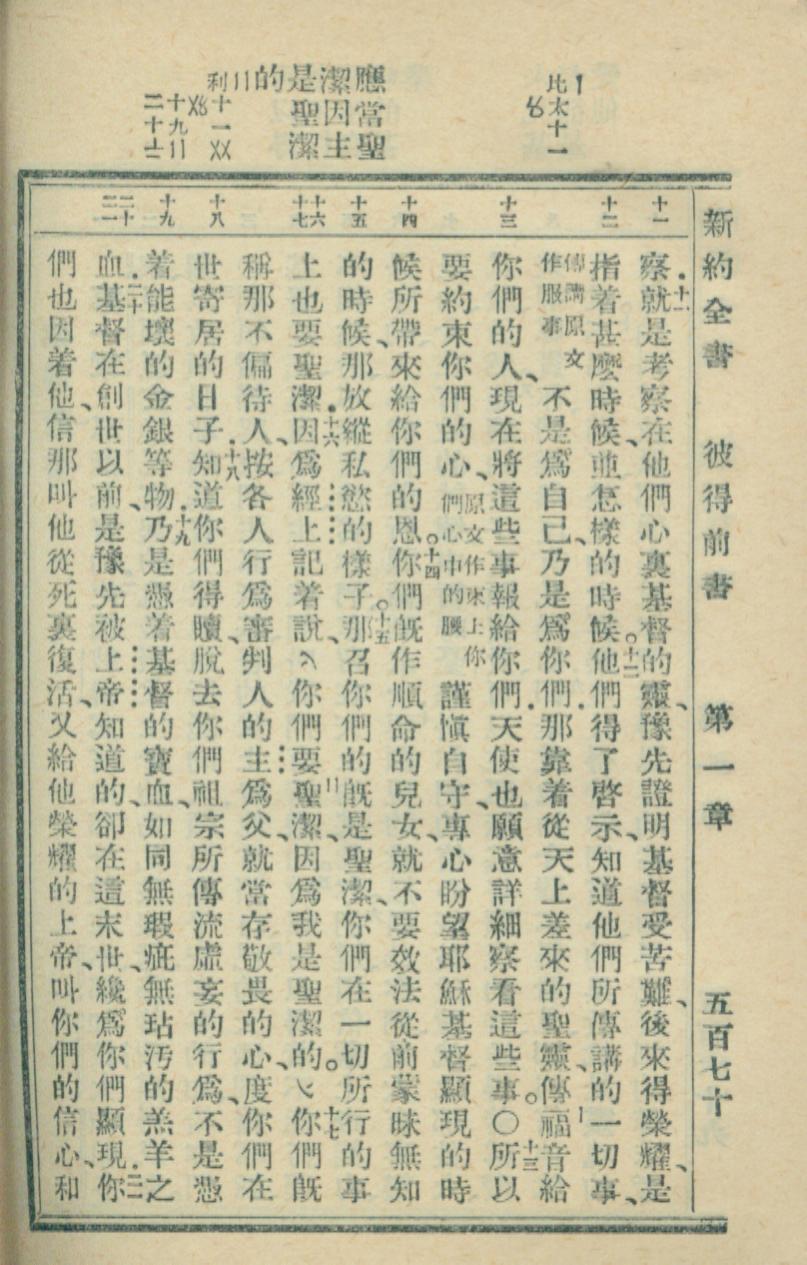 新約全書 彼得前書 第一章 五百七十
一比太十一
應當聖
潔因主
是聖潔
的
二利十一
十九
二十
十一
十二
十三
十四
十五
十六
十七
十八
十九
二十
二一
察就是考察在他們心裏基督的靈、豫先證明基督受苦難、後來得榮耀、是
指着甚麽時候、並怎樣的時候。十二他們得了啓示、知道他們所傳講的一切事、
傳講原文作服事不是爲自己、乃是爲你們.那靠着從天上差來的聖靈、傳福音給
你們的人、現在將這些事報給你們.天使也願意詳細察看這些事。〇十三所以
要約束你們的心、原文作束上你們心中的腰謹愼自守、專心盼望耶穌基督顯現的時
候所帶來給你們的恩。十四你們旣作順命的兒女、就不要效法從前蒙昧無知
的時候、那放縱私慾的樣子。十五那召你們的旣是聖潔、你們在一切所行的事
上也要聖潔.十六因爲經上記着說、你們要聖潔、因爲我是聖潔的。十七你們旣
稱那不偏待人、按各人行爲審判人的主爲父、就當存敬畏的心、度你們在
世寄居的日子.十八知道你們得贖、脫去你們祖宗所傳流虛妄的行爲、不是憑
着能壞的金銀等物.十九乃是憑着基督的寶血、如同無瑕疵、無玷汚的羔羊之
血.二十基督在創世以前、是豫先被上帝知道的、卻在這末世、纔爲你們顯現.二一你
們也因着他、信那叫他從死裏復活、又給他榮耀的上帝、叫你們的信心、和